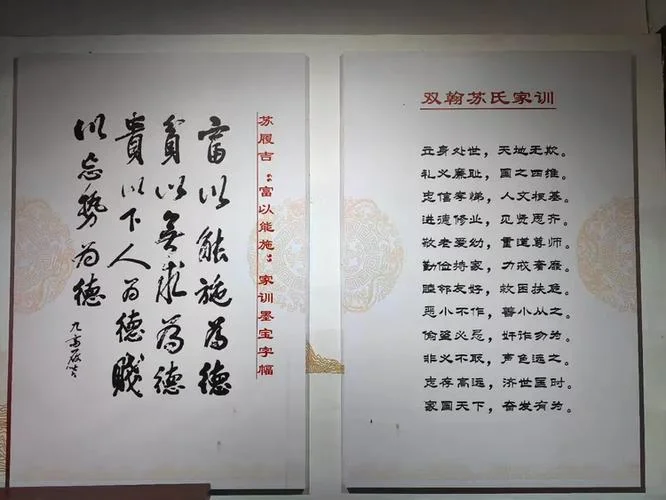 苏履吉“富以能施”家训墨宝字幅
富以能施為德
貧以無求為德
貴以下人为德賤
以忘勢为德
双翰苏氏家训
立身处世，天地无欺。
礼义廉耻，国之四维。
忠信孝悌，人文根基。
进德修业，见贤思齐。
敬老爱幼，重道尊师。
勤俭持家，力戒奢靡。
睦邻友好，救困扶危。
恶小不作，善小从之。
偷盗必忌，奸诈勿为。
非义不取，声色远之。
志存高远，济世匡时。
家国天下，奋发有为。